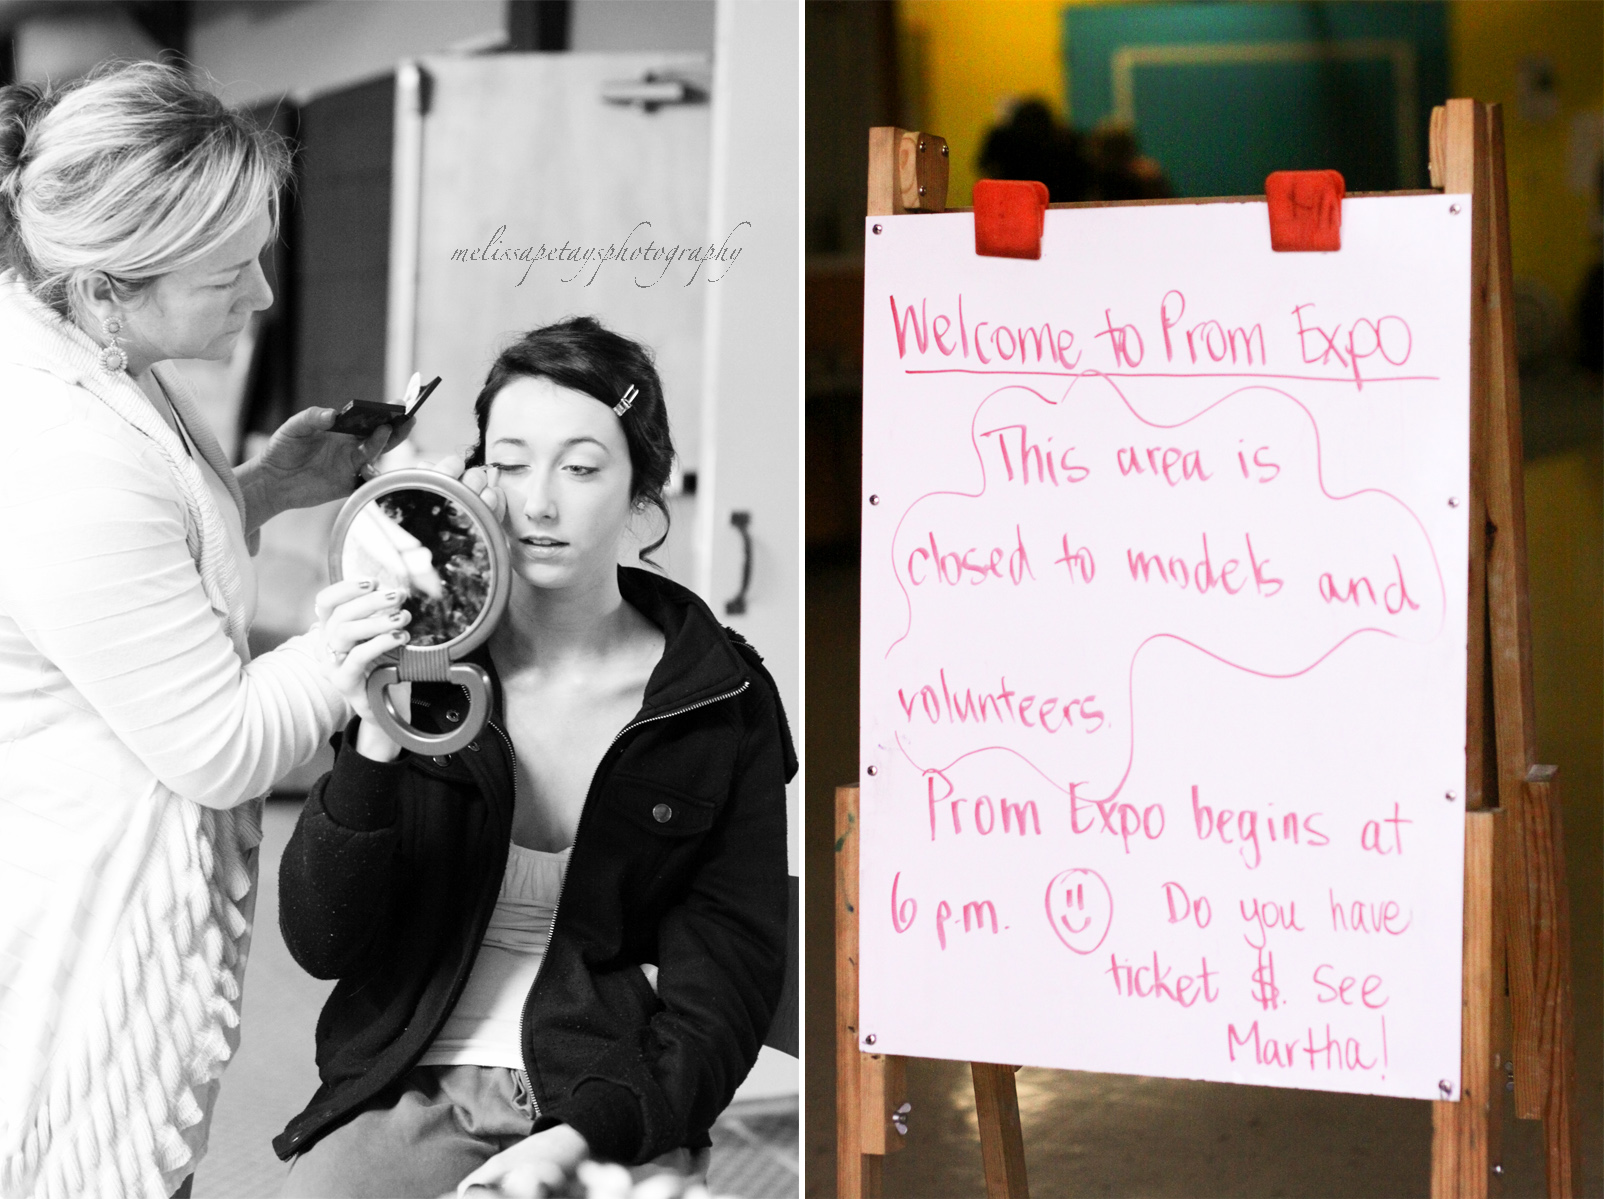 melissapetaysphotography
Welcome to Prom Expo
This area is
closed to models and
volunteers.
Prom Expo begins at
6 p.m. Do you have
ticket $. See
Martha!